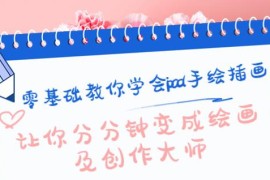 零基础教你学会ipad手绘插画
让你分分钟变成绘画
及创作大师